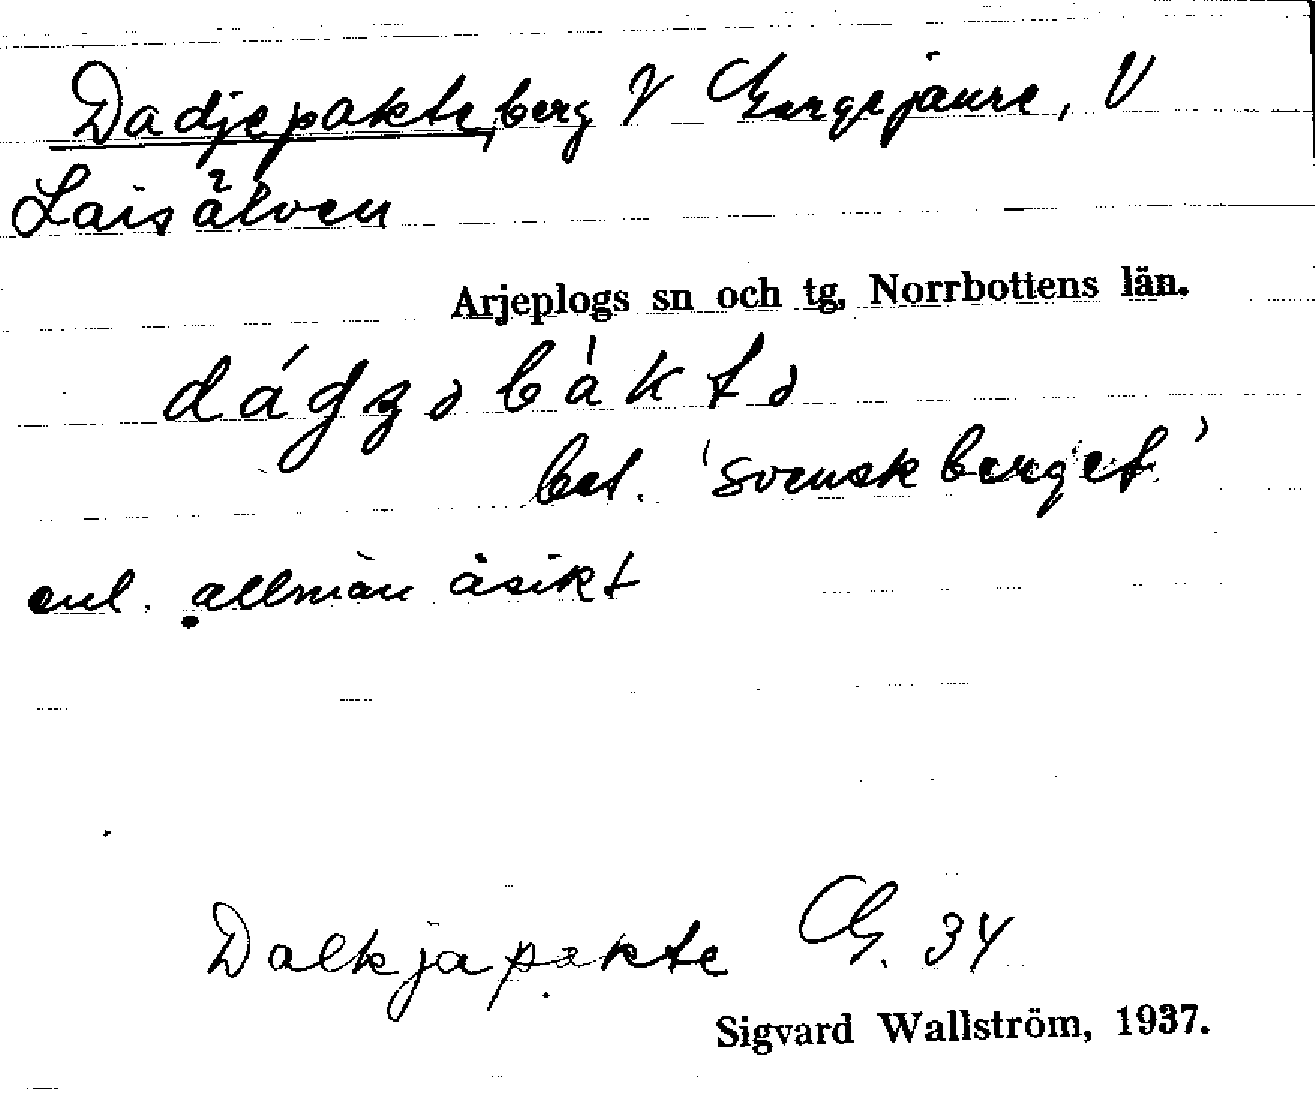 Dadjepakte, berg V Gargejaure, V
Laisälven
Arjeplogs sn och tg, Norrbottens län.
bet. 'svenskberget'
enl. allmän åsikt
Dalkjapakte G. 34
Sigvard Wallström, 1937.